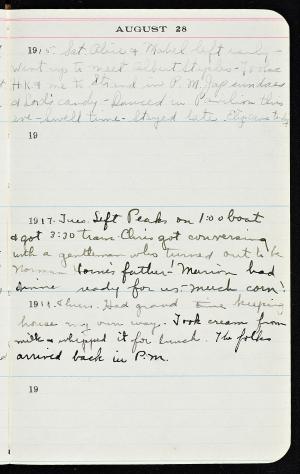 AUGUST 28
1915. Sat. Alice & Mabel left early -
Went up to meet Albert Staples - Took
H.K. & me to Strand in P.M. Jap sundaes
& Lord's candy - Danced in Pavilion this
eve - Swell time - Stayed late.
19
1917. Tues. Left Peaks on 1:00 boat
& got 3:30 train Chris got conversing
with a gentleman who turned out to be
Norman father - Marion had
dinner ready for us - much corn!
1919. Thurs. Had grand time keeping
house my own way. Took cream from
milk & whipped it for lunch. The folks
arrived back in P.M.
19